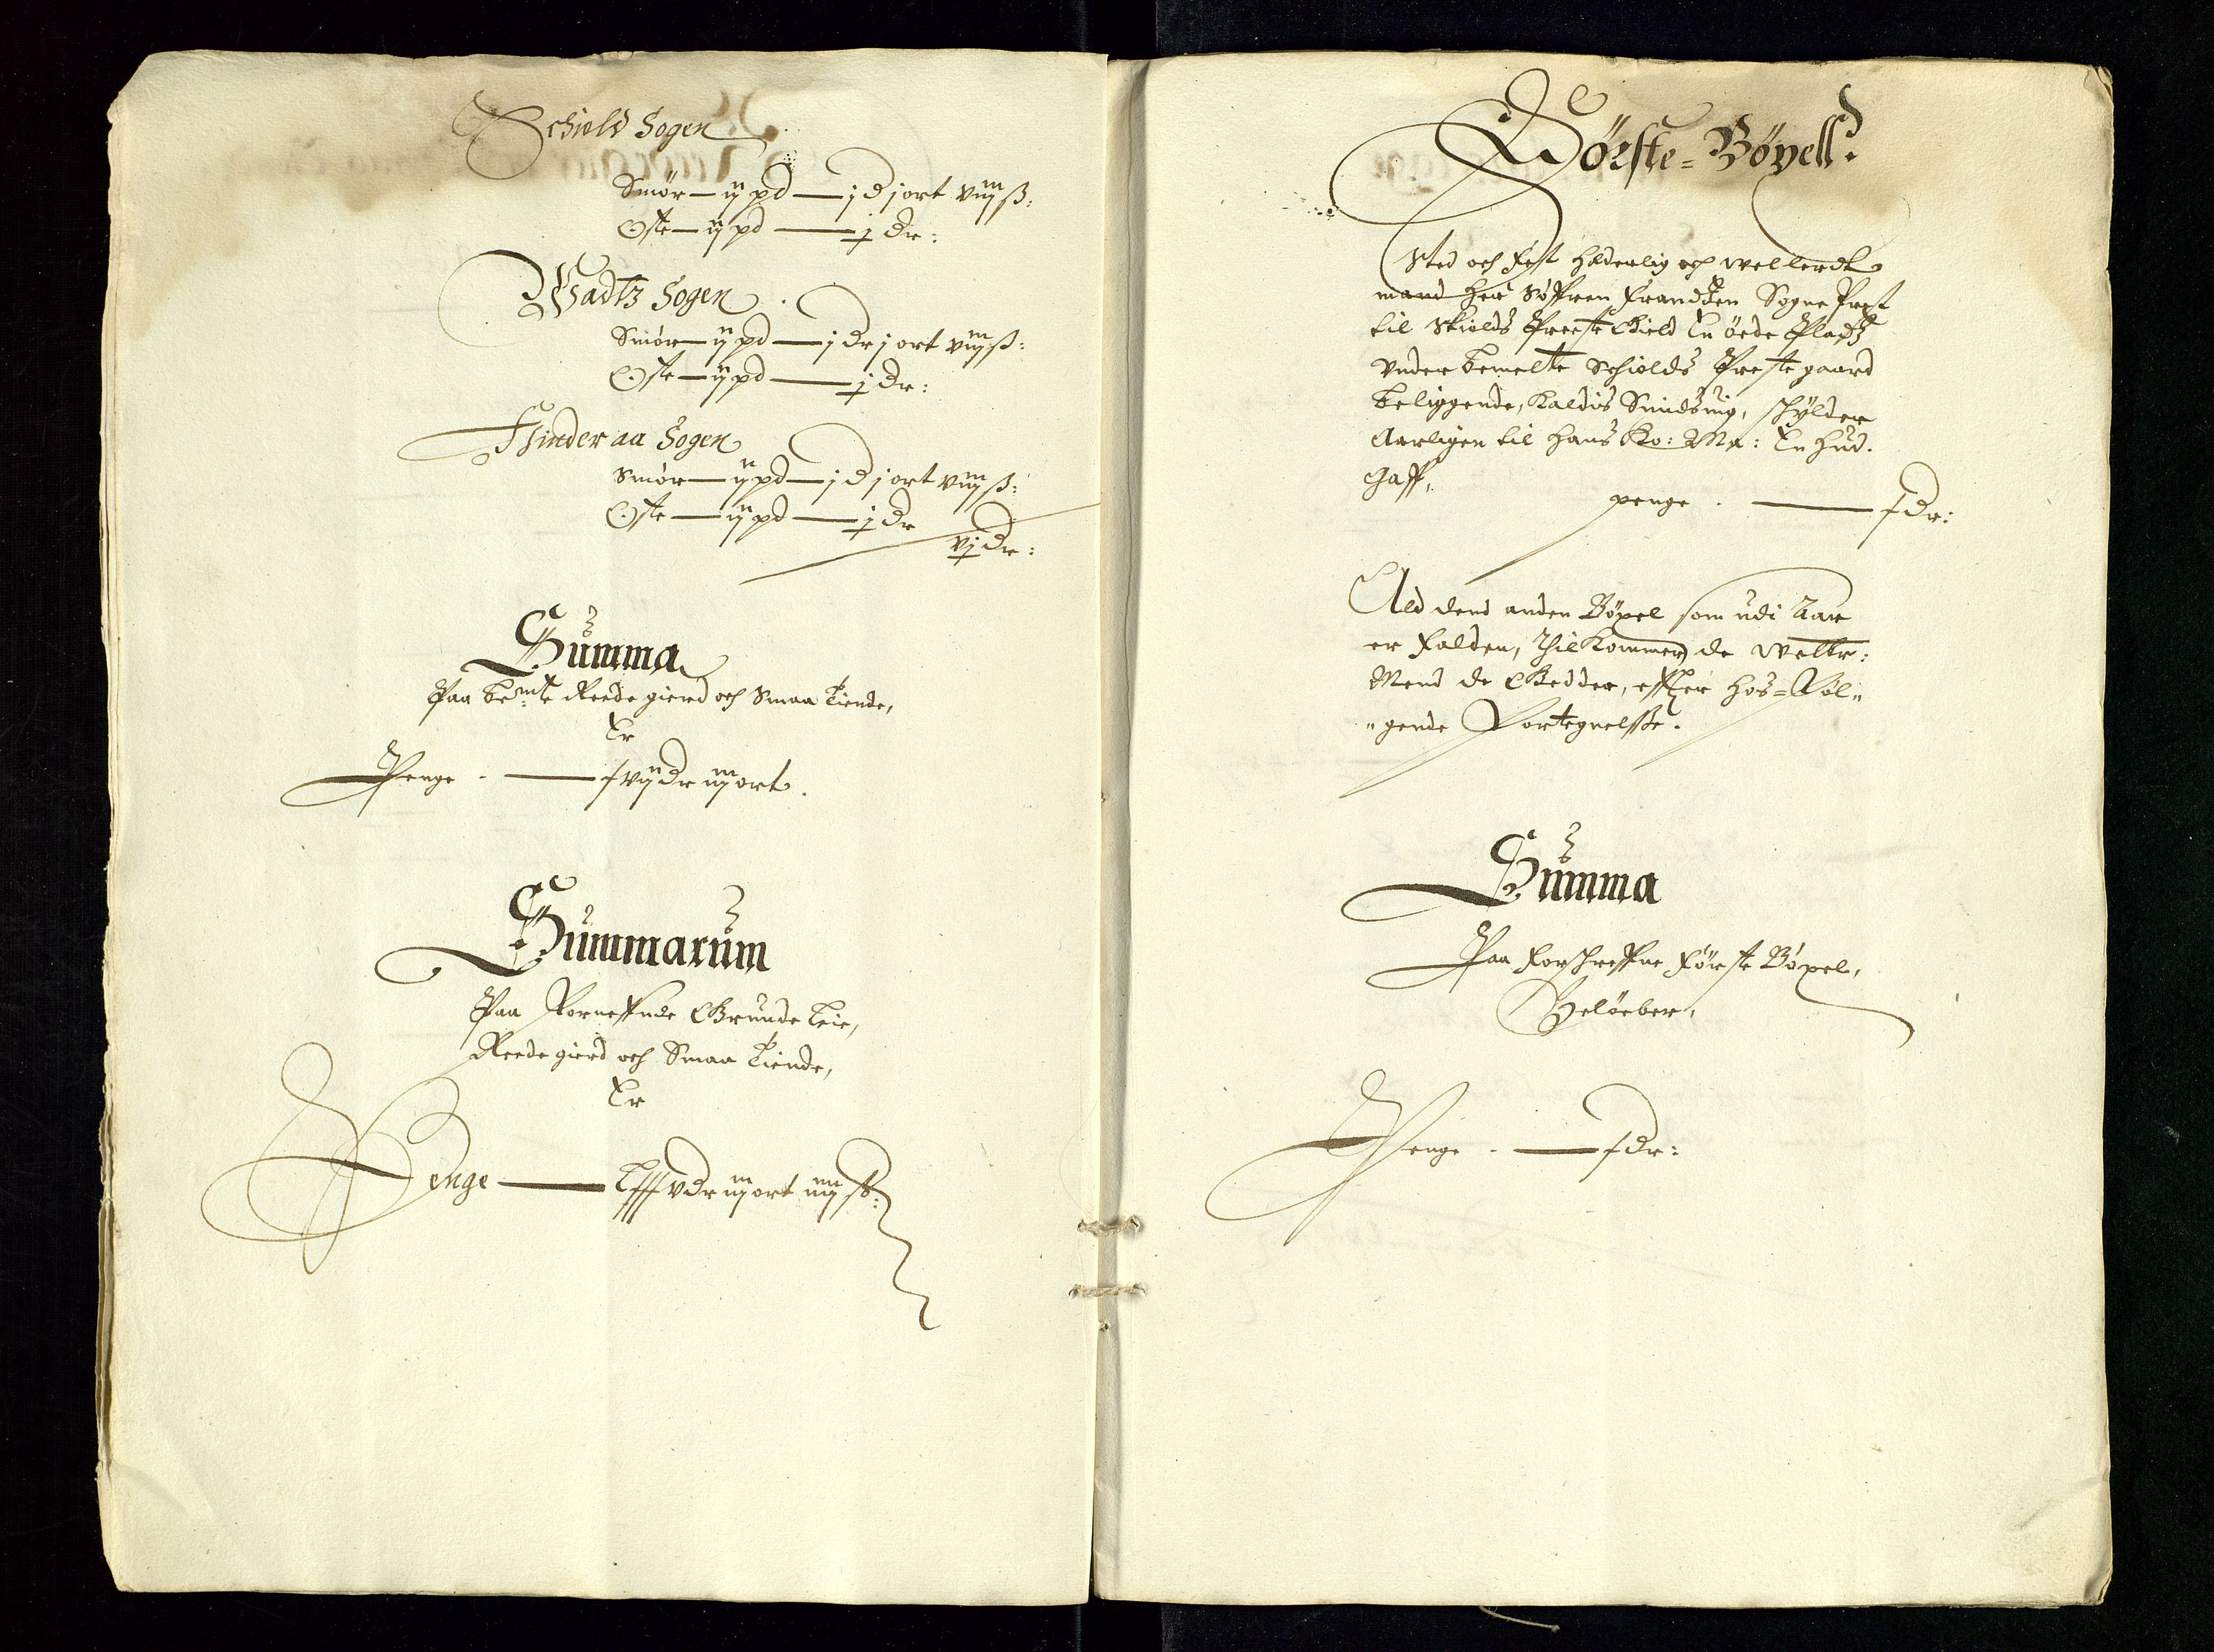 Schiold Sogen
Smör — ij pd — j d j ort viij ß:
Oste — ij pd — j dr:
Wadtz Sogen
Smör — ij pd — j dr j ort viij ß:
Oste — ij pd — j dr:
Hinder aa Sogen
Smör — ij pd — j d j ort viij ß:
Oste — ij pd — j dr
vj dr:
Summa
Paa bemte Reede gierd och Smaa tiende,
Er
Penge — xvij dr iij ort.
Summarum
Paa Forneffnde Grunde leie,
Reede gierd och Smaa tiende,
Er
Penge — Lxxxv dr iij ort iiij ß:
Förste-Böxell.
Sted och Fest hæderlig och wellerdt
mand Her Söffren Frandtzen Sogne Prest
til Skiolds Preste Gield En öede Pladtz
Vnder bemelte Schiolds Prestegaard
beliggende, Kaldis Smidsuig, schylder
Aarligen til hans Ko: Ma: En hud.
Gaff,
penge — x dr:
Ald dend anden Böxel som udi Aar
er Falden, Thil Kommer de Welbr:
Mend de Gedder, effter hos=Föl„
„gende Fortegnelsse.
Summa
Paa Forschreffne Förste Böxel,
Belöeber,
Penge — x dr: